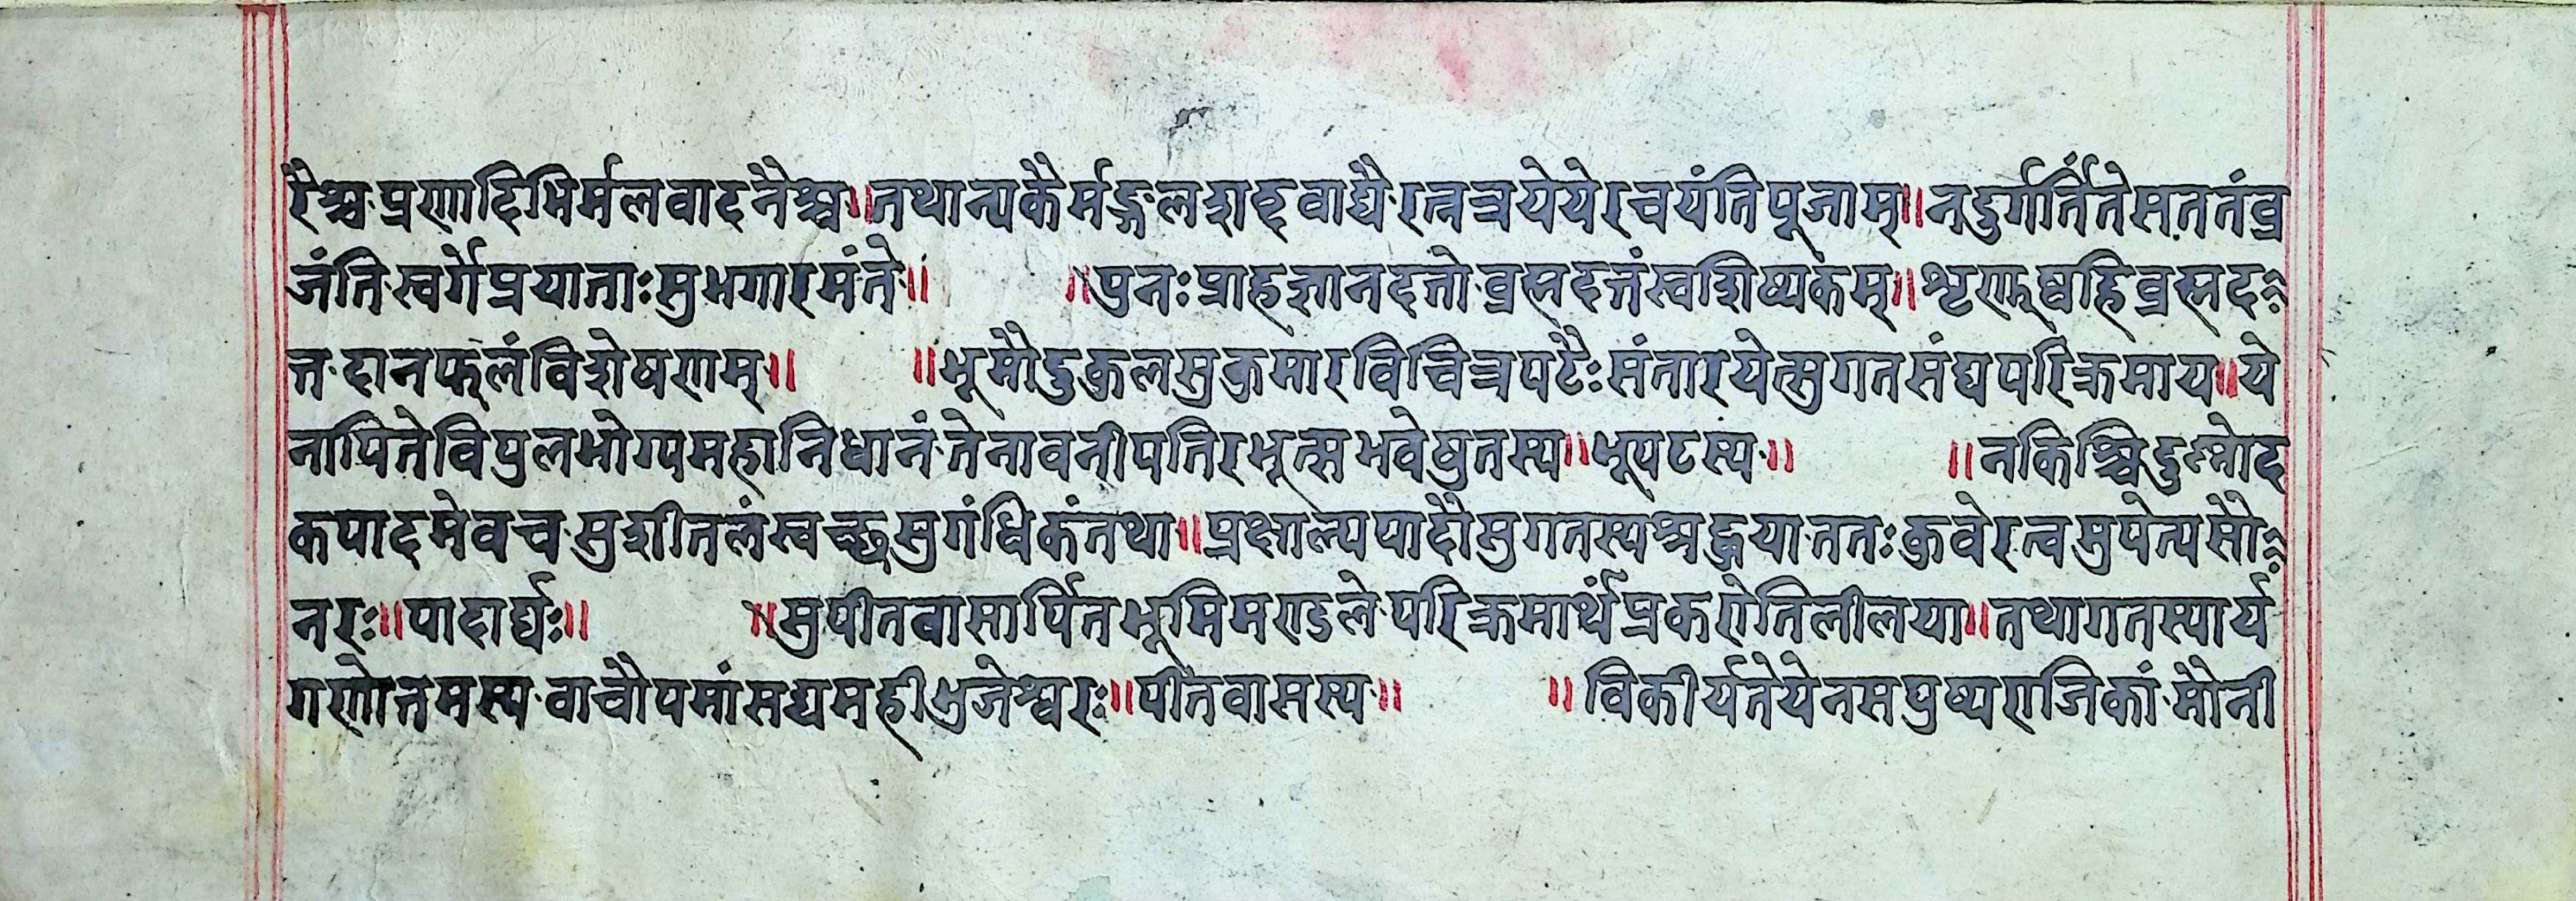 रैश्च प्रणादिभिर्मलवादनैश्च॥तथान्यकैर्मङ्गलशङ्खवाद्यै रत्नत्रयेये रचयंतिपूजाम्॥नदुर्गर्तितेसततंव्र
जंति स्वर्गेप्रयाताःसुभगारमंते॥ ॥पुनःप्राहज्ञानदत्तो ब्रह्मदत्तंस्वशिष्यकम्॥शृणुष्वहिब्रह्मद
त्त दानफलंविशेषणम्॥ ॥भूमौदुकुलसुकुमारविचित्रपटैःसंतारयेत्सुगतसंघपरिक्रमाय॥ये
नापितेविपुलभोग्यमहानिधानं तेनावनीपतिरभूत्सभवेषुतस्य॥भूपटस्य॥ ॥नकिश्चिदुश्नोद
कपादमेवच सुशीतलंस्वच्छसुगंधिकंतथा॥प्रक्षाल्यपादौसुगतस्यश्रद्धया ततःकुवेरत्वमुपेत्यसौ
नरः॥पादार्घ्यः॥ ॥सुपीतवासार्पितभूमिमण्डले परिक्रमार्थंप्रकरोतिलीलया॥तथागतस्यार्य
गणोत्तमस्य वाचौपमांसद्यमहीभुजेश्वरः॥पीतवासस्य॥ ॥विकीर्यतेयेनसपुष्पराजिकां मौनी